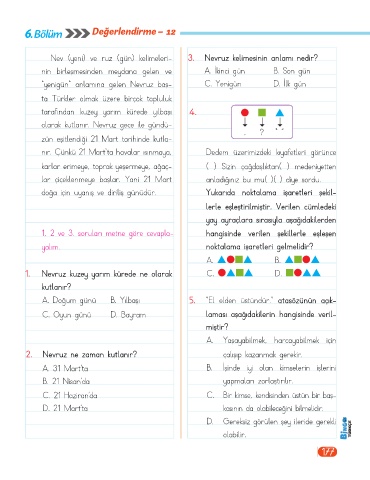 6. Bölüm Değerlendirme - 12
Nev (yeni) ve ruz (gün) kelimeleri-
nin birleşmesinden meydana gelen ve
"yenigün" anlamına gelen Nevruz baş-
ta Türkler olmak üzere birçok topluluk
tarafından kuzey yarım kürede yılbaşı
olarak kutlanır. Nevruz gece ile gündü-
zün eşitlendiği 21 Mart tarihinde kutla-
nır. Çünkü 21 Mart'ta havalar ısınmaya,
karlar erimeye, toprak yeşermeye, ağaç-
lar çiçeklenmeye başlar. Yani 21 Mart
doğa için uyanış ve diriliş günüdür.
1, 2 ve 3. soruları metne göre cevapla-
yalım.
1. Nevruz kuzey yarım kürede ne olarak
kutlanır?
A. Doğum günü B. Yılbaşı
C. Oyun günü D. Bayram
2. Nevruz ne zaman kutlanır?
A. 31 Mart'ta
B. 21 Nisan'da
C. 21 Haziran'da
D. 21 Mart'ta
3. Nevruz kelimesinin anlamı nedir?
A. İkinci gün B. Son gün
C. Yenigün D. İlk gün
4.
?
Dedem üzerimizdeki kıyafetleri görünce
( ) Sizin çağdaşlıktan( ) medeniyetten
anladığınız bu mu( )( ) diye sordu.
Yukarıda noktalama işaretleri şekil-
lerle eşleştirilmiştir. Verilen cümledeki
yay ayraçlara sırasıyla aşağıdakilerden
hangisinde verilen şekillerle eşleşen
noktalama işaretleri gelmelidir?
A. ▲●■▲ B. ▲■●▲
C. ●▲■▲ D. ■●▲▲
5. "El elden üstündür." atasözünün açık-
laması aşağıdakilerin hangisinde veril-
miştir?
A. Yaşayabilmek, harcayabilmek için
çalışıp kazanmak gerekir.
B. İşinde iyi olan kimselerin işlerini
yapmaları zorlaştırılır.
C. Bir kimse, kendisinden üstün bir baş-
kasının da olabileceğini bilmelidir.
D. Gereksiz görülen şey ileride gerekli
olabilir.
177